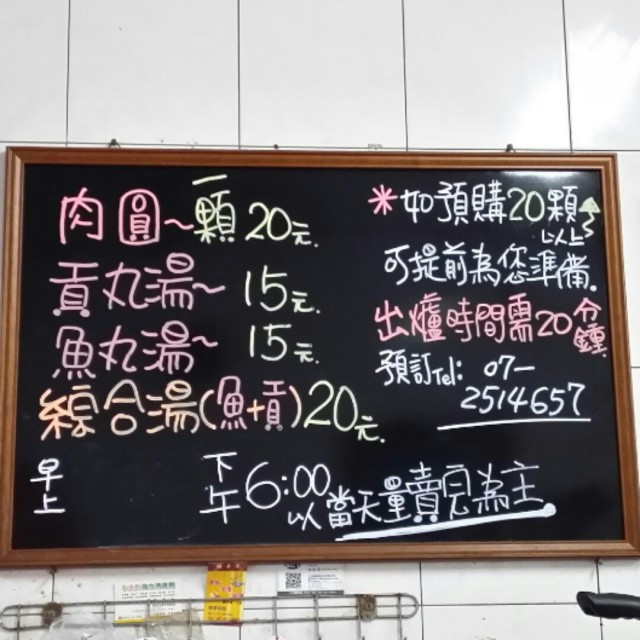 肉圓~一顆20元.
貢丸湯~ 15元.
魚丸湯~ 15元.
綜合湯(魚+貢)20元.
早上 下午6:00 以當天量賣完為主
*如預購20顆以上
可提前為您準備.
出爐時間需20分鐘.
預訂Tel: 07-
2514657